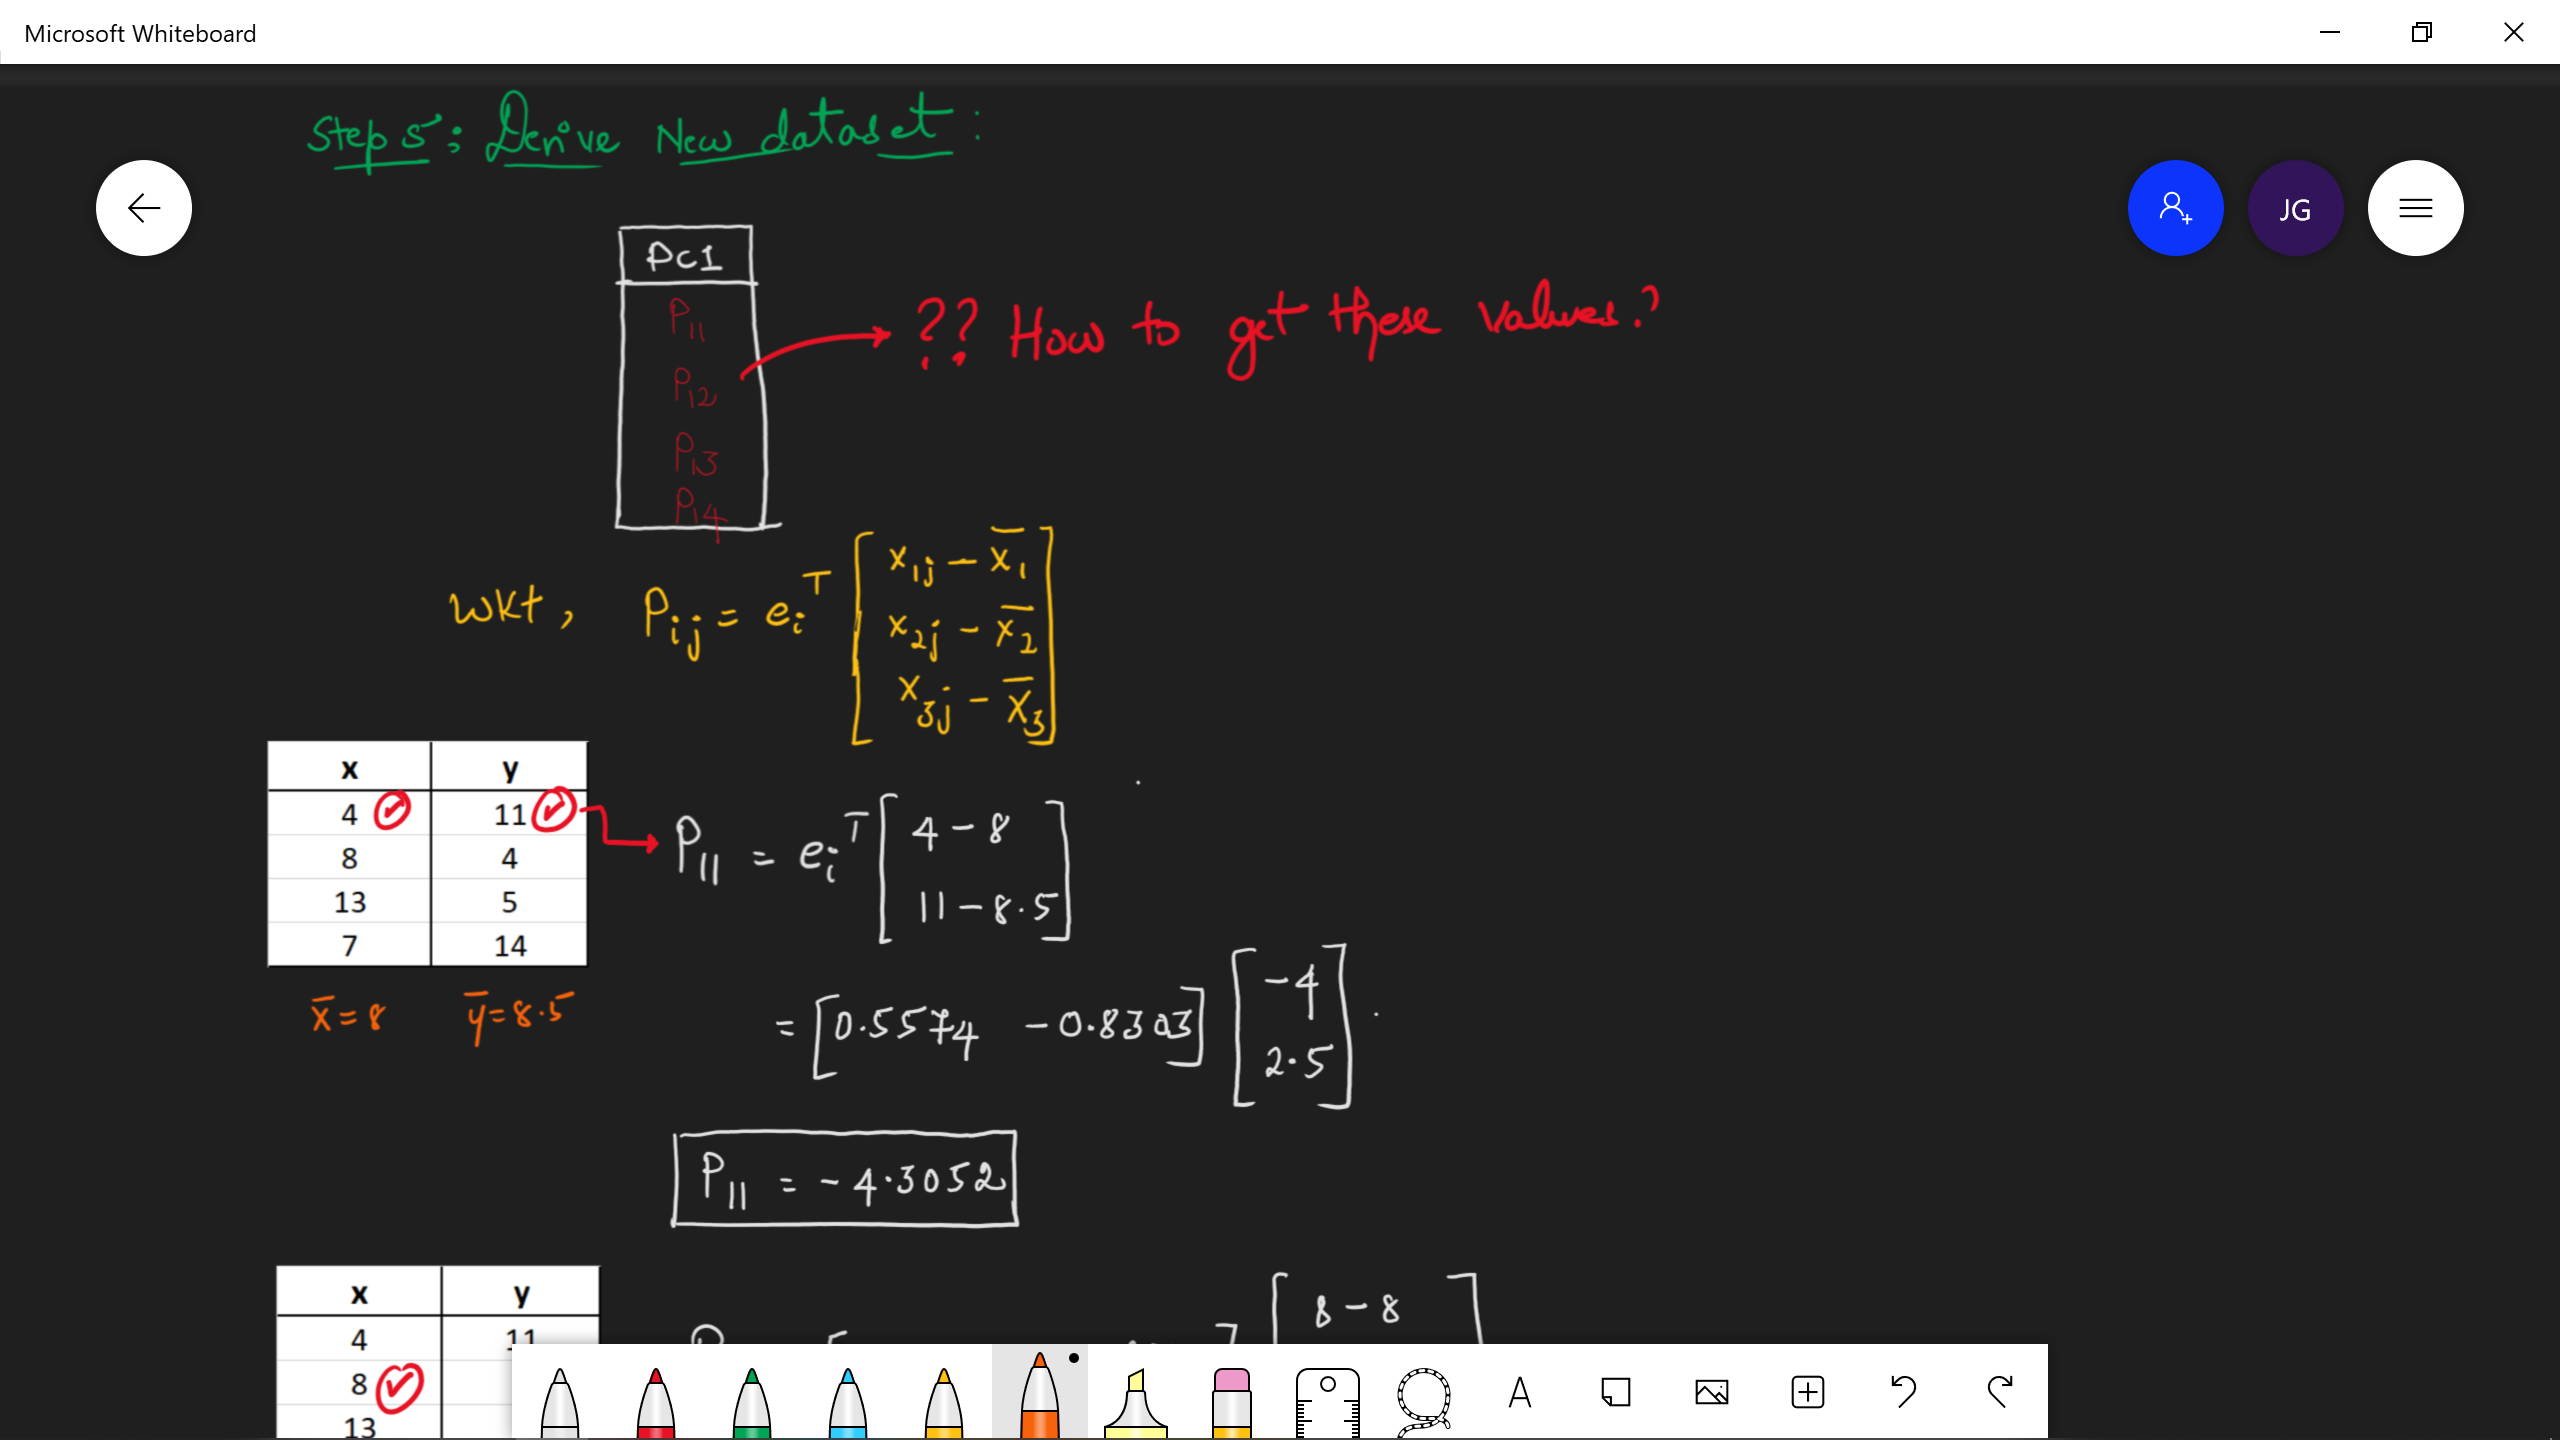 Microsoft Whiteboard
Step 5: Derive New dataset:
JG
PC1
P11
?? How to get these values?
P12
P13
P14
wkt, Pij = ei^T [ x1j - x̄1
x2j - x̄2
x3j - x̄3 ]
x y
4 11
8 4
13 5
7 14
x̄=8 ȳ=8.5
P11 = ei^T [ 4-8
11-8.5 ]
= [0.5574 -0.8303] [ -4
2.5 ]
P11 = -4.3052
x y
4 11
8
13
8-8